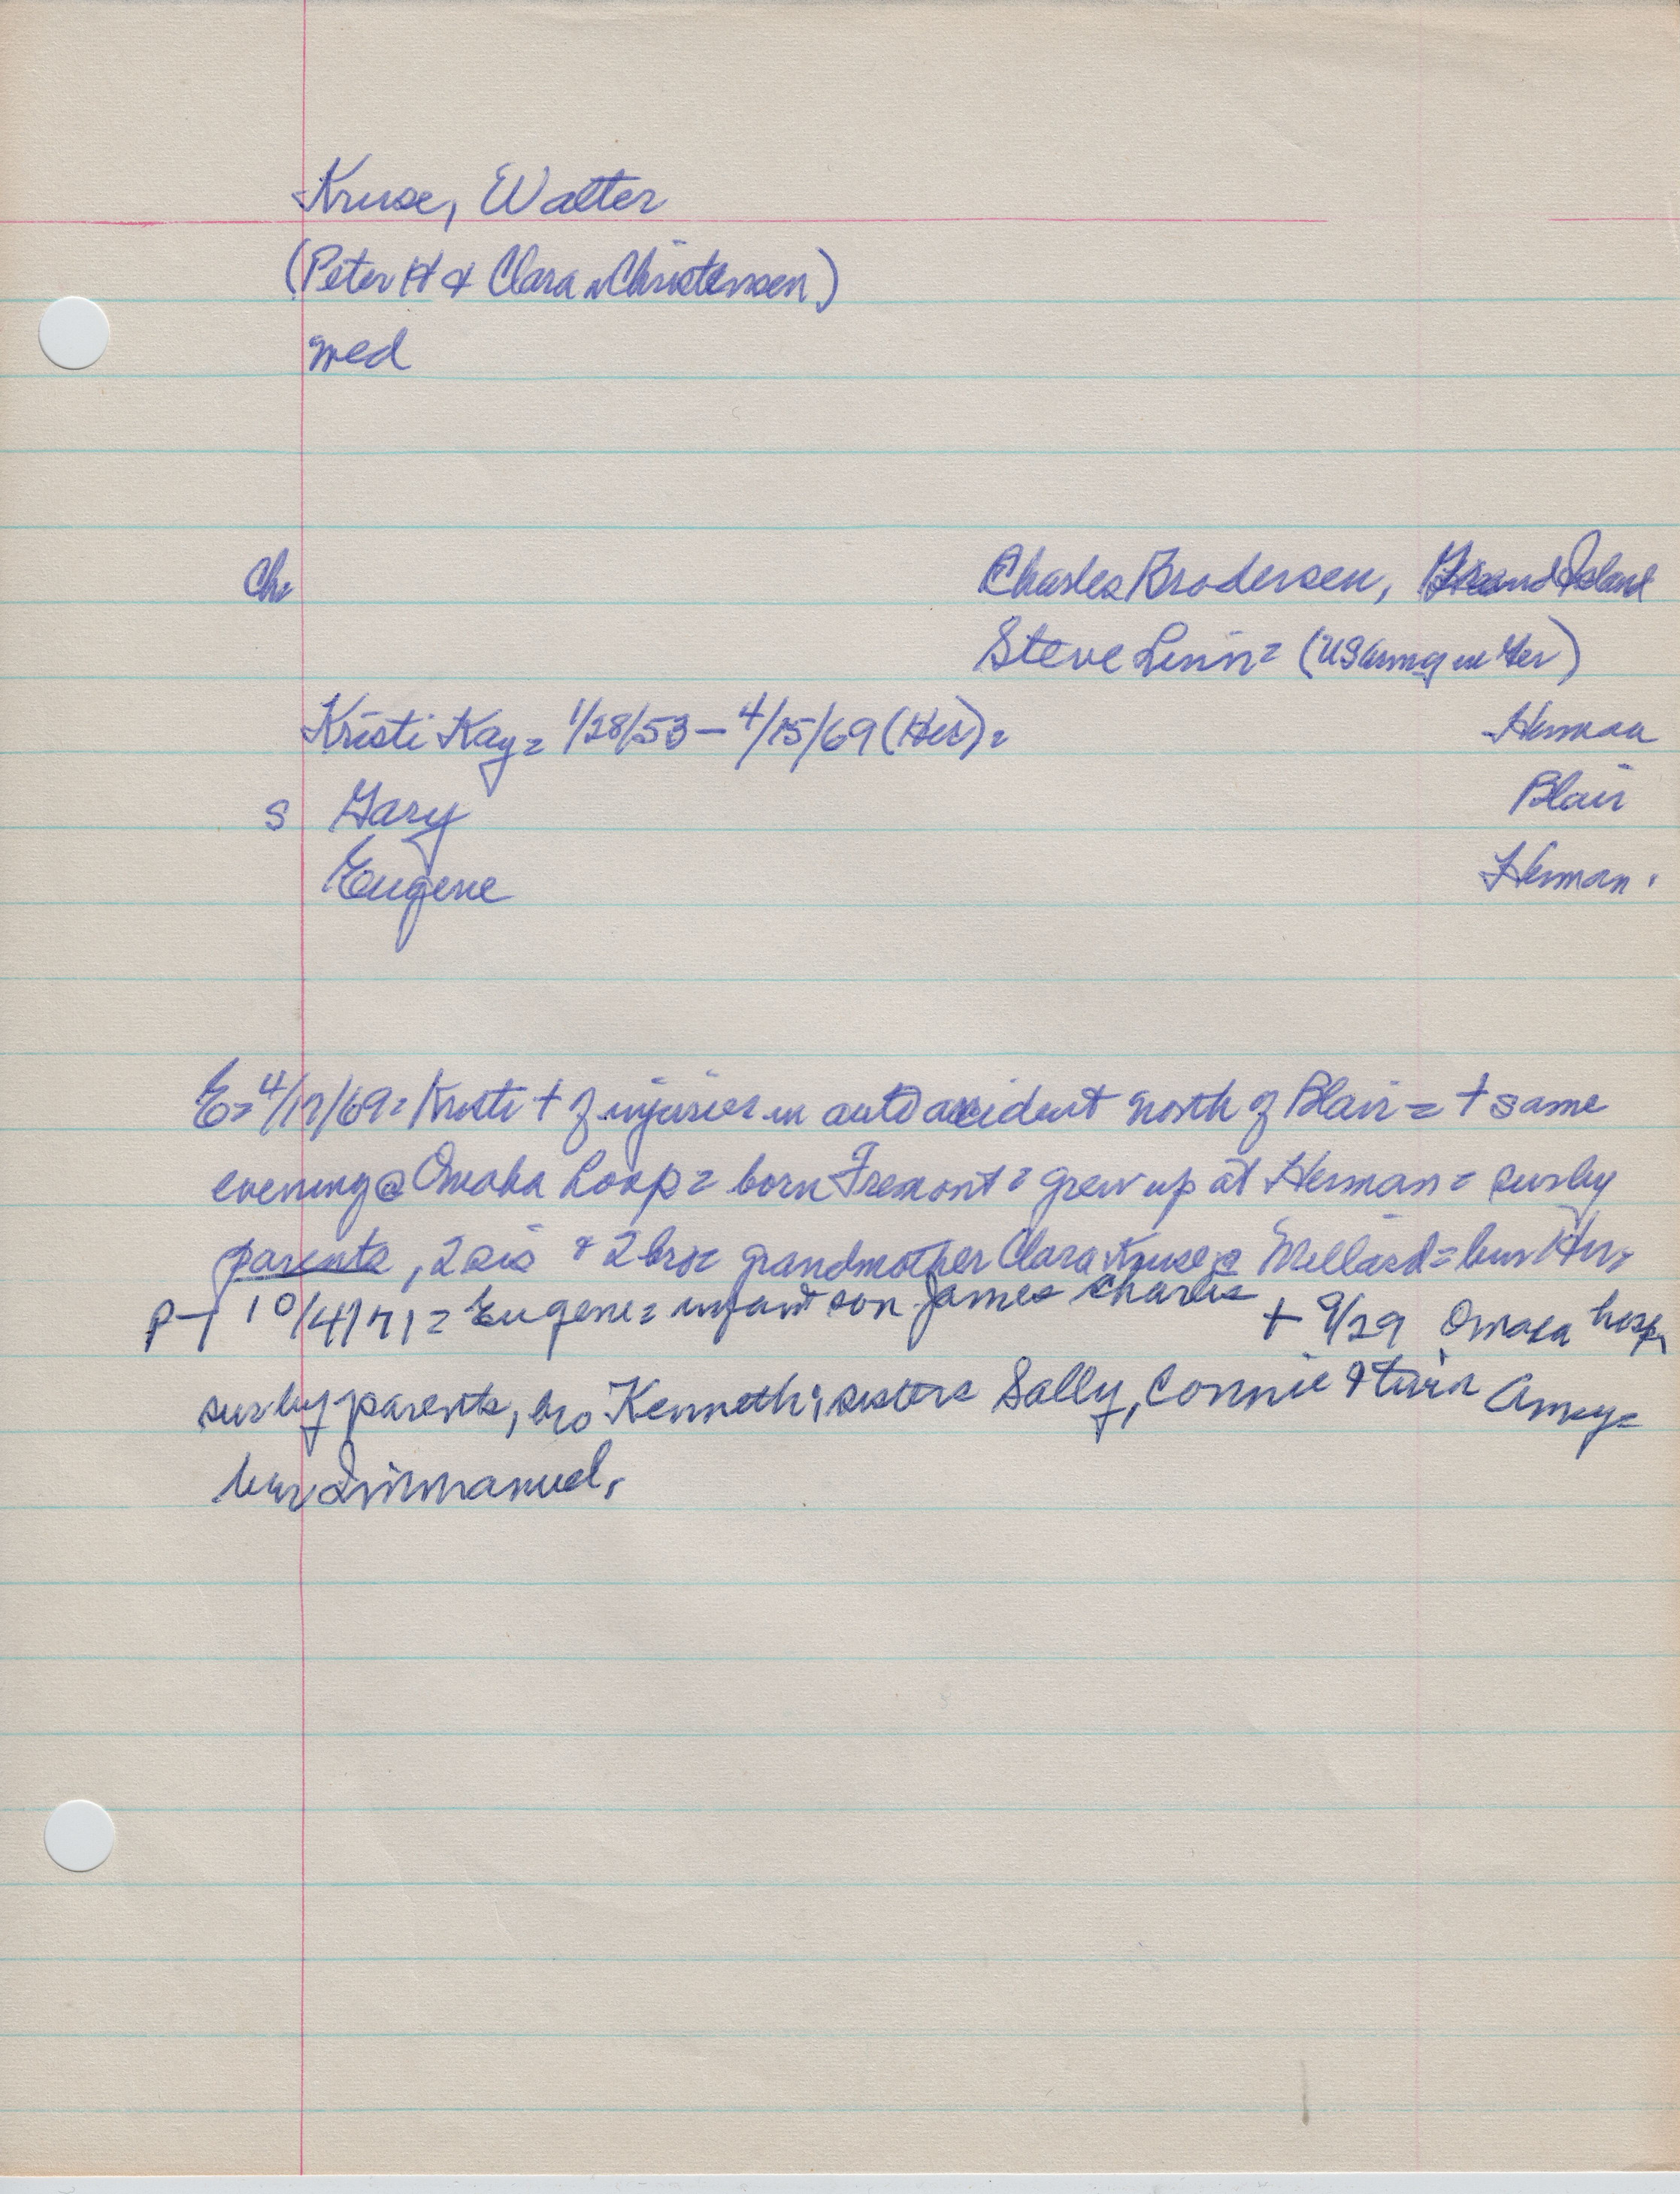 Kruse, Walter
(Peter H & Clara n Christensen)
med
Ch: Charles Brodersen, Grand Island
Steve Linn = (US army in Ger)
Kristi Kay = 1/28/53 – 4/15/69 (Her) = Herman
S Gary Blair
Eugene Herman.
E = 4/17/69 = Kristi + of injuries in auto accident north of Blair = + same
evening @ Omaha hosp = born Fremont = grew up at Herman = sur by
parents, 2 sis & 2 bro = grandmother Clara Kruse @ Millard = bur Her.
P-T 10/4/71 = Eugene = infant son James Charles + 9/29 Omaha hosp,
sur by parents, bro Kenneth; sisters Sally, Connie & twin Amey =
bur Immanuel.